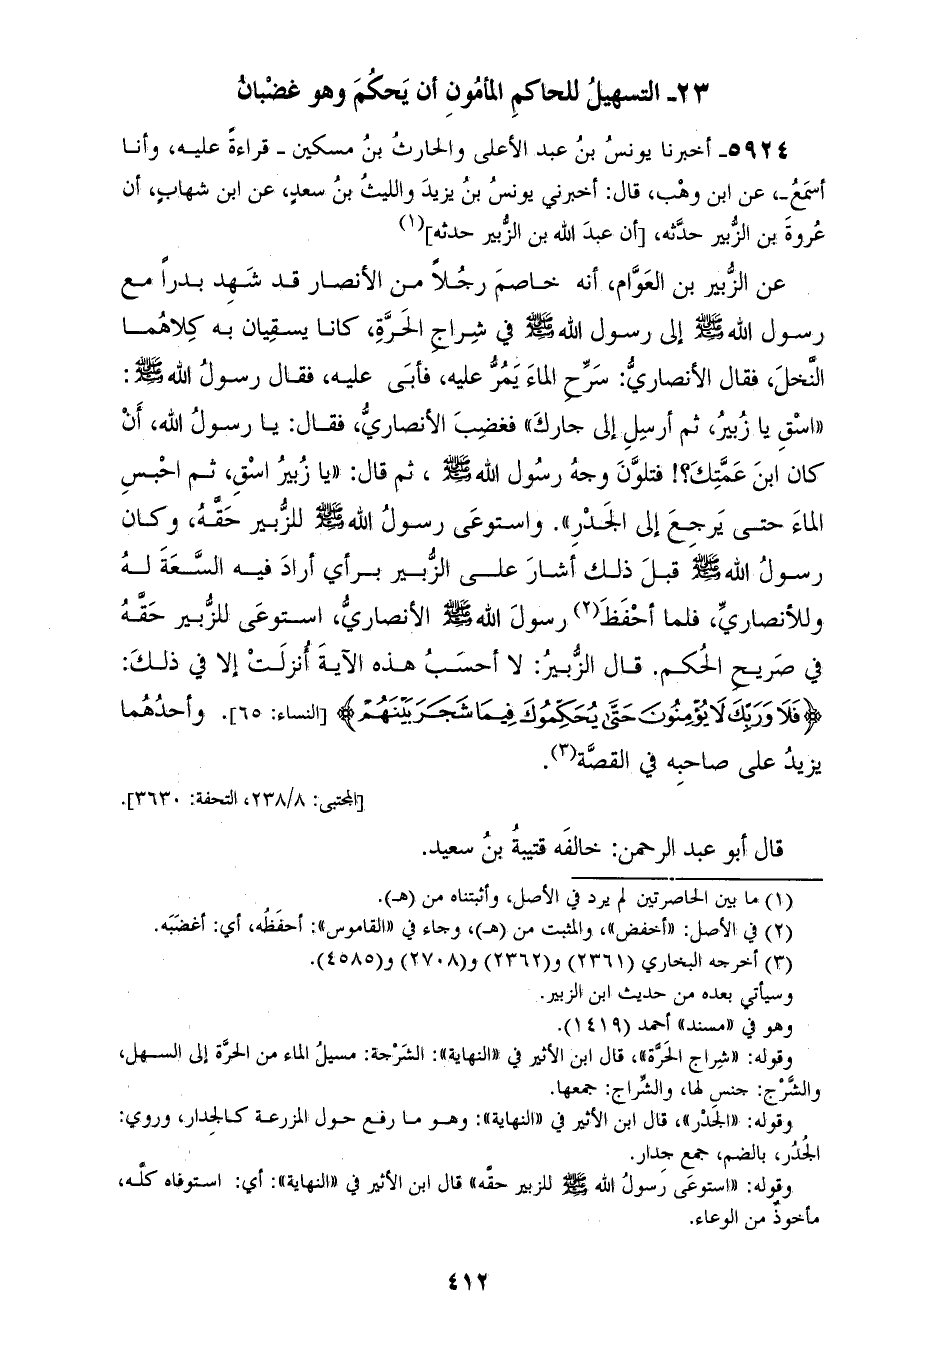 ٢٣ـ التسهيلُ للحاكمِ المأمُونِ أن يَحكُمَ وهو غضْبانُ
٥٩٢٤ـ أخبرنا يونسُ بنُ عبد الأعلى والحارثُ بنُ مسكين ـ قراءةً عليه، وأنا
أسمَعُ ـ، عن ابن وهْب، قال: أخبرني يونسُ بنُ يزيدَ والليثُ بنُ سعدٍ، عن ابن شهاب، أن
عُروةَ بن الزُّبير حدَّثه، [أن عبدَ الله بن الزُّبير حدثه](١)
عن الزُّبير بن العَوَّام، أنه خاصمَ رجُلاً من الأنصار قد شَهِد بدراً مع
رسول الله ﷺ إلى رسول الله ﷺ في شِراجِ الحَرَّةِ، كانا يسقِيان به كِلاهُما
النَّخلَ، فقال الأنصاريُّ: سَرِّحِ الماءَ يَمُرُّ عليه، فأبَى عليه، فقال رسولُ الله ﷺ:
«اسْقِ يا زُبيرُ، ثم أرسِلِ إلى جارك» فغضِبَ الأنصاريُّ، فقال: يا رسولُ الله، أَنْ
كان ابنَ عَمَّتِك؟! فتلوَّنَ وجهُ رسُول الله ﷺ ، ثم قال: «يا زُبيرُ اسْقِ، ثم احْبسِ
الماءَ حتى يَرجِعَ إلى الجَدْرِ». واستوعَى رسولُ الله ﷺ للزُّبير حَقَّهُ، وكان
رسولُ الله ﷺ قبلَ ذلك أشارَ على الزُّبير برأي أرادَ فيه السَّعَةَ لهُ
وللأنصاريِّ، فلما أحْفَظَ(٢) رسولَ الله ﷺ الأنصاريُّ، استوعَى للزُّبير حَقَّهُ
في صَريحِ الحُكم. قال الزُّبيرُ: لا أحسَبُ هذه الآيةَ أُنزلَتْ إلا في ذلكَ:
﴿فَلَا وَرَبِّكَ لَا يُؤْمِنُونَ حَتَّىٰ يُحَكِّمُوكَ فِيمَا شَجَرَ بَيْنَهُمْ﴾ [النساء: ٦٥]. وأحدُهُما
يزيدُ على صاحبِه في القصَّة(٣).
[المجتبى: ٢٣٨/٨، التحفة: ٣٦٣٠].
قال أبو عبد الرحمن: خالفَه قتيبةُ بنُ سعيد.
(١) ما بين الحاصرتين لم يرد في الأصل، وأثبتناه من (هـ).
(٢) في الأصل: «أخفض»، والمثبت من (هـ)، وجاء في «القاموس»: أحفَظُه، أي: أغضَبَه.
(٣) أخرجه البخاري (٢٣٦١) و(٢٣٦٢) و(٢٧٠٨) و(٤٥٨٥).
وسيأتي بعده من حديث ابن الزبير.
وهو في «مسند» أحمد (١٤١٩).
وقوله: «شِراج الحَرَّة»، قال ابن الأثير في «النهاية»: الشَّرْجة: مسيلُ الماء من الحرَّة إلى السهل،
والشَّرْج: جنس لها، والشِّراج: جمعها.
وقوله: «الجَدْر»، قال ابن الأثير في «النهاية»: وهو ما رفع حول المزرعة كالجدار، وروي:
الجُدُر، بالضم، جمع جدار.
وقوله: «استوعَى رَسولُ الله ﷺ للزبير حقَّه» قال ابن الأثير في «النهاية»: أي: استوفاه كلَّه،
مأخوذٌ من الوعاء.
٤١٢